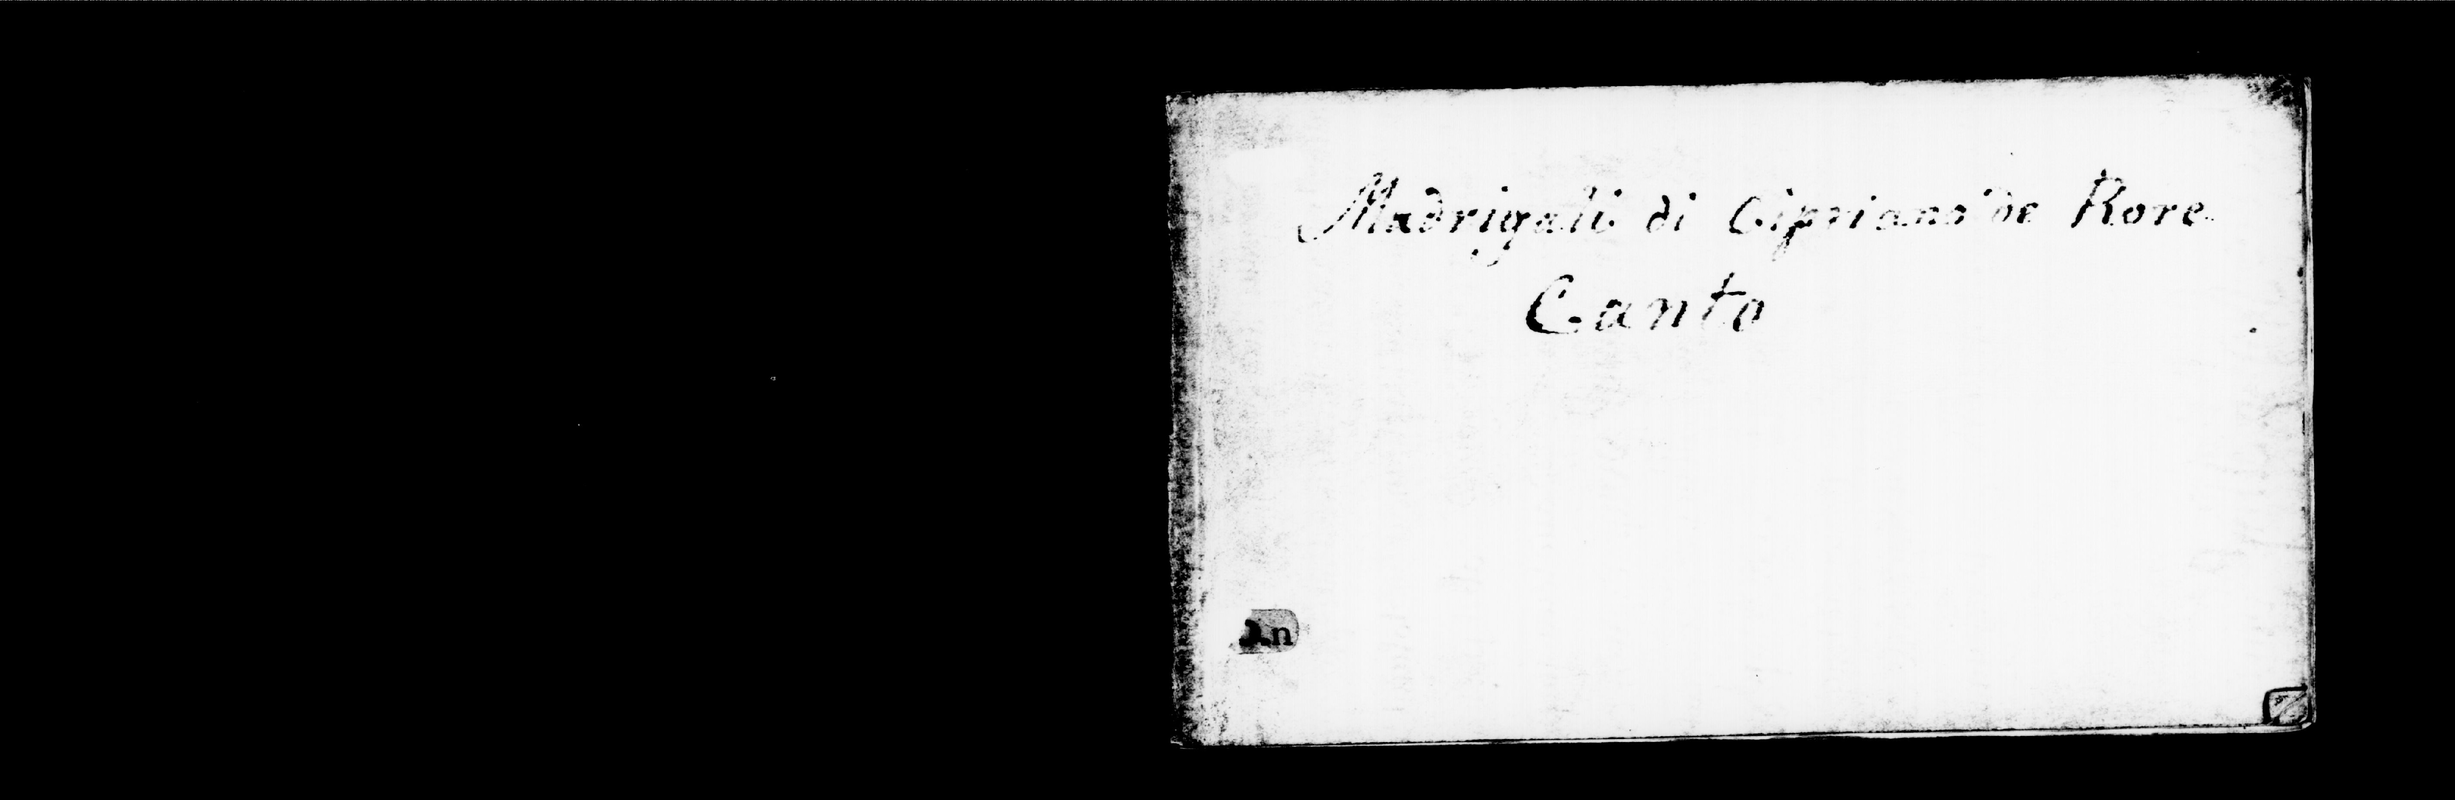 Madrigali di Cipriano de Rore
Canto